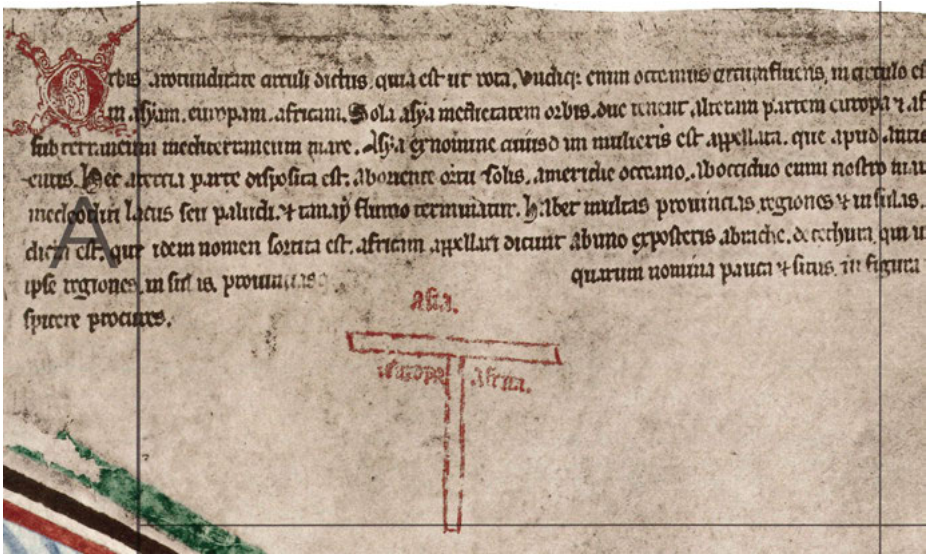 Orbis arotunditate circuli dictus. quia est ut rota. Undiq; enim occeanus circumfluens. in circulo
in asyam. europam. africam. Sola asya medietatem orbis. due tenent. alteram partem europa ⁊
subterraneum mediterraneum mare. Asya ex nomine cuiusdam mulieris est appellata. que apud
Hec in tercia parte disposita est. ab oriente ortu solis. a meridie occeano. ab occiduo enim nostro
lacus seu palude. ⁊ tanay fluuio terminatur. Habet multas prouincias regiones ⁊ insulas.
A
dicta est. que idem nomen sortita est. africam appellari dicunt ab uno ex posteris abrahe. de cethura. qui
ipse regiones. insulas. prouincias quarum nomina pauca ⁊ situs. in figura
spicere procures.
Asia.
Europe Africa.